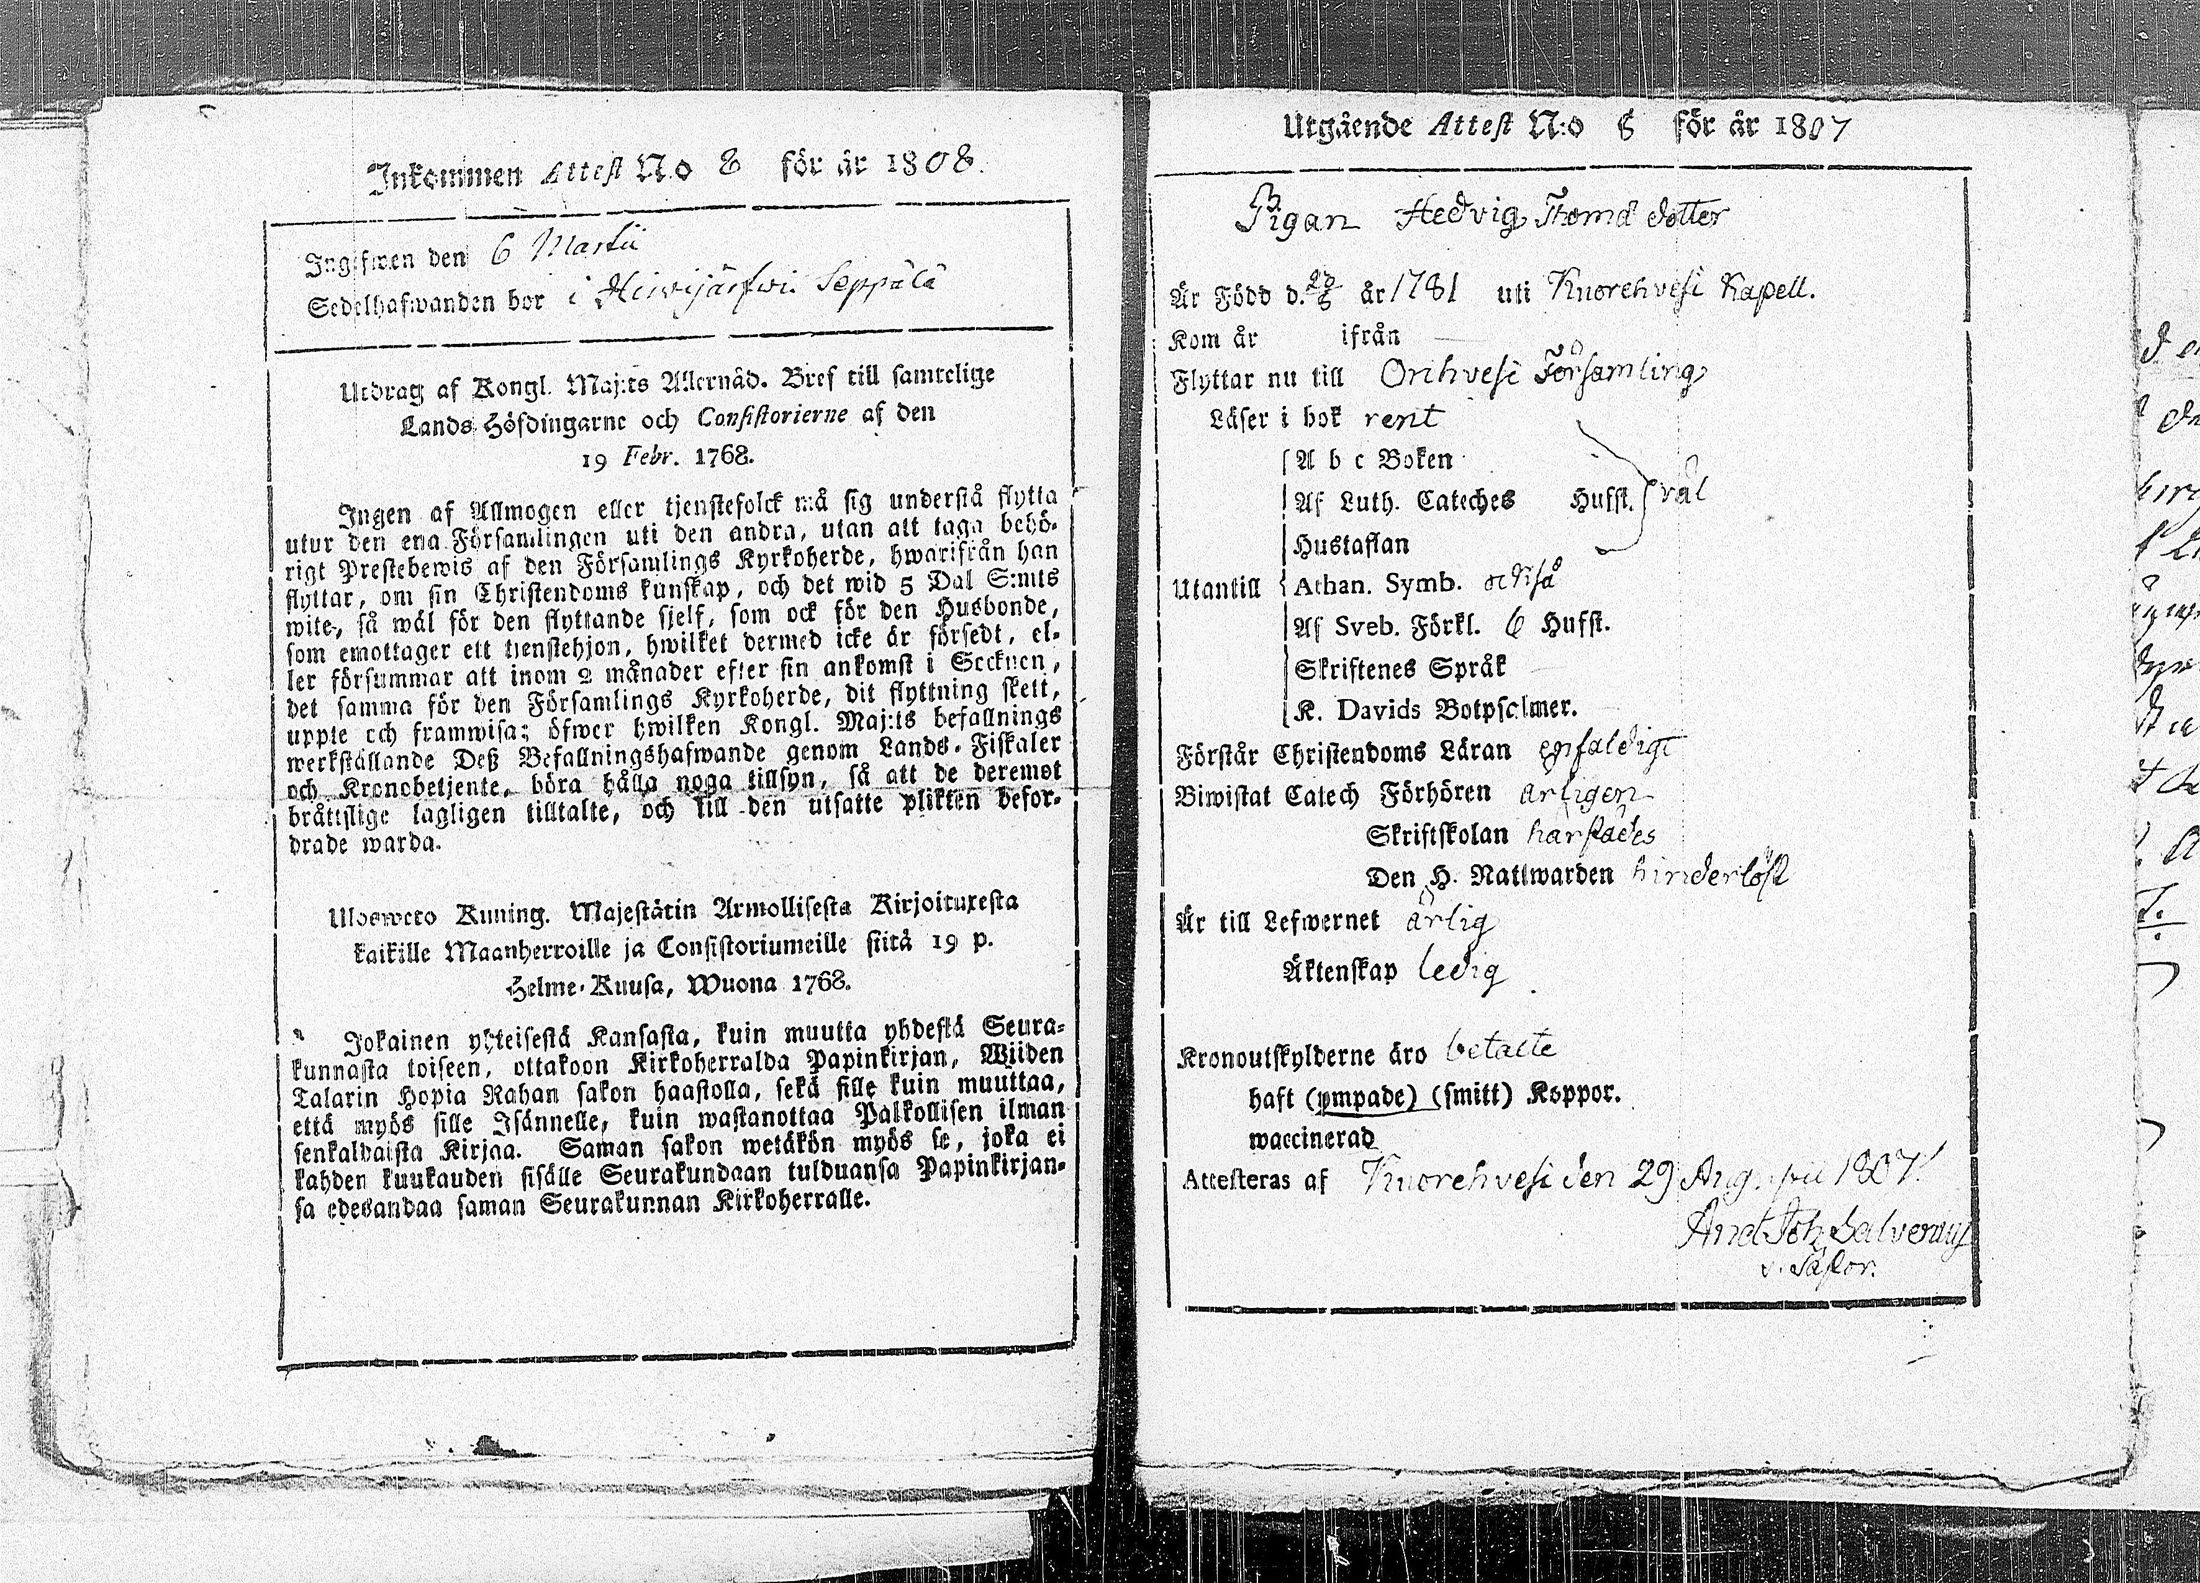 Inkommen Attest N:o 8 för år 1808.
Ingifwen den 6 Martii
Sedelhafwanden bor i Hirvijärfwi Seppälä
Utdrag af Kongl. Maj:ts Allernåd. Bref till samtelige
Lands Höfdingarne och Consistorierne af den
19 Febr. 1768.
Ingen af Allmogen eller tjenstefolck må sig understå flytta
utur den ena Församlingen uti den andra, utan att taga behö-
rigt Prestebewis af den Församlings Kyrkoherde, hwarifrån han
flyttar, om sin Christendoms kunskap, och det wid 5 Dal S:mts
wite, så wäl för den flyttande sjelf, som ock för den Husbonde,
som emottager ett tienstehjon, hwilket dermed icke är försedt, el-
ler försummar att inom 2 månader efter sin ankomst i Socknen,
det samma för den Församlings Kyrkoherde, dit flyttning skett,
uppte och framwisa; öfwer hwilken Kongl. Maj:ts befallnings
werkställande Deß Befallningshafwande genom Lands-Fiskaler
och Kronobetjente, böra hålla noga tillsyn, så att de deremot
bråttslige lagligen tilltalte, och till den utsatte plikten befor-
drade warda.
Uloswero Kuning. Majestätin Armollisesta Kirjoituxesta
kaikille Maanherroille ja Consistoriumeille siitä 19 p.
Helme-Kuusa, Wuona 1768.
Jokainen yhteisestä Kansasta, kuin muutta yhdestä Seura-
kunnasta toiseen, ottakoon Kirkoherralda Papinkirjan, Wiiden
Talarin Hopia Rahan sakon haastolla, sekä sille kuin muuttaa,
että myös sille Isännelle, kuin wastanottaa Palkollisen ilman
senkaldaista Kirjaa. Saman sakon wetäkön myös se, joka ei
kahden kuukauden sisälle Seurakundaan tulduansa Papinkirjan-
sa edesandaa saman Seurakunnan Kirkoherralle.
Utgående Attest N:o 8 för år 1807
Pigan Hedvig Thomä dotter
Är Född d. 28/8 år 1781 uti Kuorehvesi Kapell.
Kom år ifrån
Flyttar nu till Orihvesi Församling
Läser i bok rent
A b c Boken
Af Luth. Cateches Hufst. väl
Hustaflan
Utantill Athan. Symb. också
Af Sveb. Förkl. 6 Hufst.
Skriftenes Språk
K. Davids Botpsalmer.
Förstår Christendoms Läran enfaldigt
Biwistat Catech Förhören årligen
Skriftskolan härstädes
Den H. Nattwarden hinderlöst
Är till Lefwernet ärlig
Äktenskap ledig
Kronoutskylderne äro betalte
haft (ympade) (smitt) Koppor.
waccinerad
Attesteras af Kuorehvesi den 29 Augustii 1807.
And. Joh. Salvenius
v. Pastor.